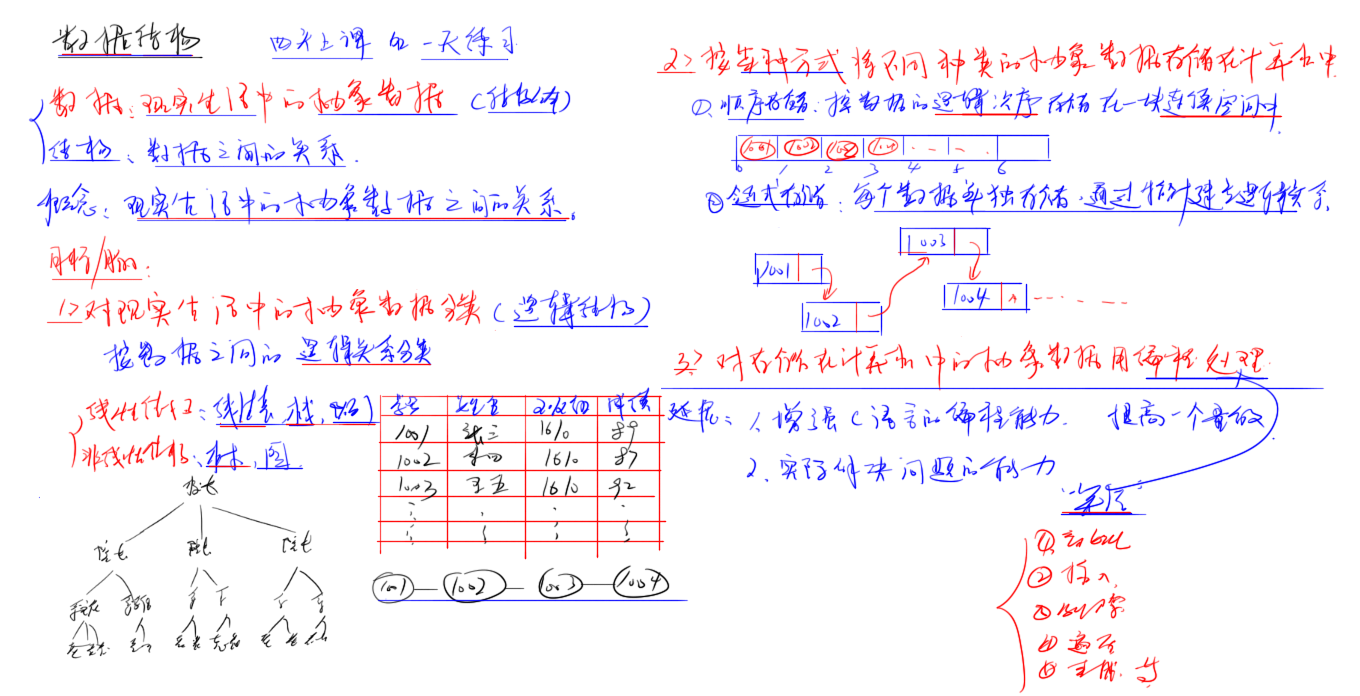 数据结构 四天上课 加 一天练习
数据：现实生活中的抽象数据（结构体）
结构：数据之间的关系.
概念：现实生活中的抽象数据之间的关系。
目标/目的：
1>对现实生活中的抽象数据分类（逻辑结构）
按数据之间的逻辑关系分类
线性结构：线性表，栈，队列
非线性结构：树，图.
校长
院长 院长 院长
学号 姓名 班级 成绩
1001 张三 1610 89
1002 李四 1610 87
1003 王五 1610 92
1001 1002 1003 1004
2>按某种方式将不同种类的抽象数据存储在计算机中
①顺序存储：按数据的逻辑次序存储在一块连续空间中
1001 1002 1003 1004
0 1 2 3 4 5 6
②链式存储：每个数据单独存储，通过指针建立逻辑关系.
1003
1001
1004 ^
1002
3>对存储在计算机中的抽象数据用编程处理.
延拓：1、增强C语言的编程能力. 提高一个量级
2、实际解决问题的能力
"算法"
①初始化
②插入
③删除
④遍历
⑤查找 等